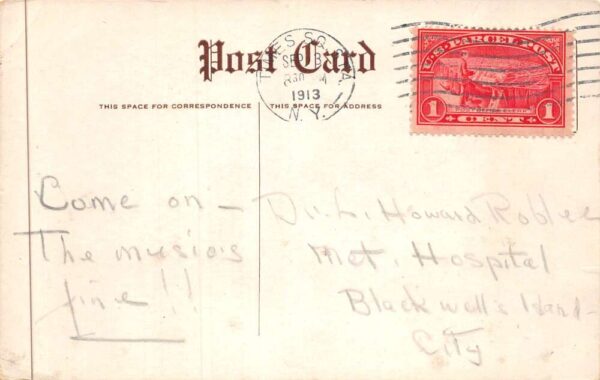 Post Card
THIS SPACE FOR CORRESPONDENCE
THIS SPACE FOR ADDRESS
TIMES SQ. STA
SEP 3
1913
N.Y.
U.S. PARCEL POST
1 1
POST OFFICE CLERK
CENT
Come on –
The music's
fine!!
Dr. L. Howard Roblee
Met. Hospital
Blackwell's Island –
City